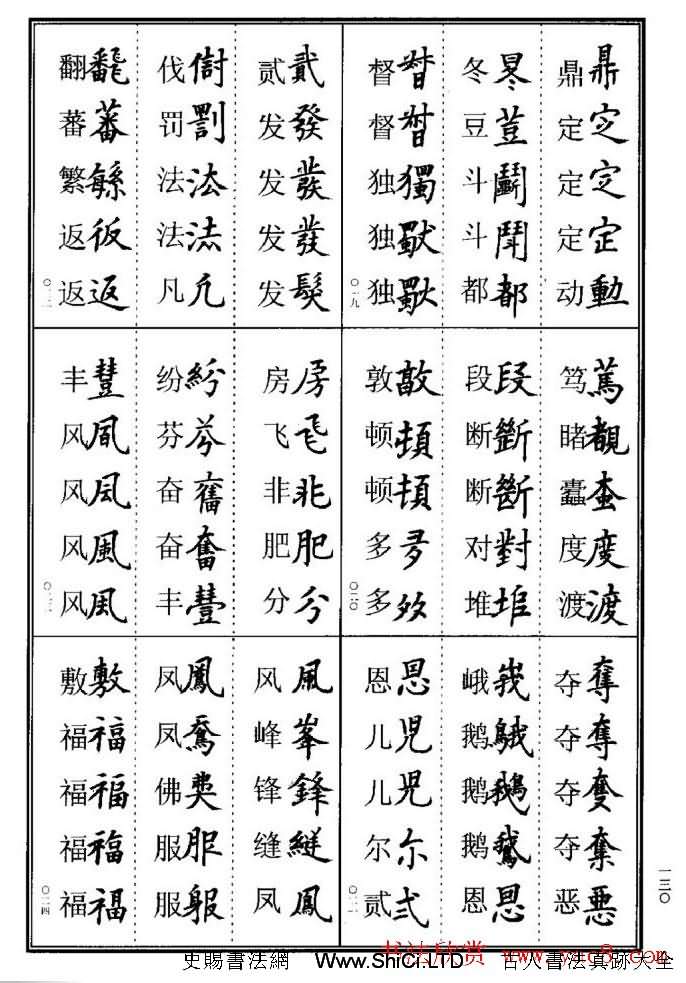 鼎鼎 定㝎 定㝎 定定 动動
冬 豆荳 斗鬭 斗 都都
督督 督督 独獨 独 独
〇一九
笃篤 睹覩 蠹 度度 渡渡
段段 断斷 断斷 对對 堆
敦敦 顿頓 顿頓 多 多
〇二〇
夺奪 夺奪 夺 夺奪 恶悪
峨峩 鹅 鹅鵝 鹅鵞 恩恩
恩恩 儿児 儿児 尔尓 贰弍
〇二一
贰貳 发發 发發 发發 发髮
伐 罚罰 法法 法法 凡凢
翻飜 蕃蕃 繁 返仮 返返
〇二二
房房 飞飛 非非 肥肥 分分
纷紛 芬芬 奋奮 奋奮 丰豐
丰豐 风 风凨 风風 风風
〇二三
风風 峰峯 锋鋒 缝縫 凤鳳
凤鳳 凤 佛 服服 服
敷敷 福福 福福 福福 福福
〇二四
一三〇
书法欣赏 www.yac8.com
史賜書法網 Www.ShiCi.LTD 古人書法真跡大全